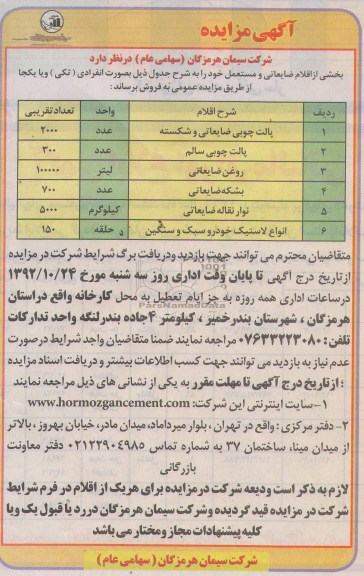 آگهی مزایده
شرکت سیمان هرمزگان (سهامی عام) درنظر دارد
بخشی ازاقلام ضایعاتی و مستعمل خود را به شرح جدول ذیل بصورت انفرادی ( تکی ) ویا یکجا
از طریق مزایده عمومی به فروش برساند :
ردیف شرح اقلام واحد تعداد تقریبی
۱ پالت چوبی ضایعاتی و شکسته عدد ۲۰۰۰
۲ پالت چوبی سالم عدد ۳۰۰
۳ روغن ضایعاتی لیتر ۱۰۰۰۰۰
۴ بشکه ضایعاتی عدد ۷۰۰
۵ نوار نقاله ضایعاتی کیلوگرم ۵۰۰۰
۶ انواع لاستیک خودرو سبک و سنگین حلقه ۱۵۰
متقاضیان محترم می توانند جهت بازدید ودریافت برگ شرایط شرکت در مزایده
ازتاریخ درج آگهی تا پایان وقت اداری روز سه شنبه مورخ ۱۳۹۲/۱۰/۲۴
درساعات اداری همه روزه به جز ایام تعطیل به محل کارخانه واقع دراستان
هرمزگان ، شهرستان بندرخمیر ، کیلومتر ۴جاده بندرلنگه واحد تدارکات
تلفن : ۰۷۶۳۳۲۲۳۰۸۰ مراجعه نمایند ضمنا متقاضیان واجد شرایط درصورت
عدم نیاز به بازدید می توانند جهت کسب اطلاعات بیشتر و دریافت اسناد مزایده
؛ ازتاریخ درج آگهی تا مهلت مقرر به یکی از نشانی های ذیل مراجعه نمایند
۱-سایت اینترنتی این شرکت: www.hormozgancement.com
۲-دفتر مرکزی : واقع در تهران ، بلوار میرداماد، میدان مادر، خیابان بهروز، بالاتر
از میدان مینا، ساختمان ۳۷ به شماره تماس ۰۲۱۲۲۹۰۴۹۸۵ دفتر معاونت
بازرگانی
لازم به ذکر است ودیعه شرکت درمزایده برای هریک از اقلام در فرم شرایط
شرکت در مزایده قید گردیده وشرکت سیمان هرمزگان دررد یا قبول یک ویا
کلیه پیشنهادات مجاز و مختار می باشد
شرکت سیمان هرمزگان (سهامی عام)